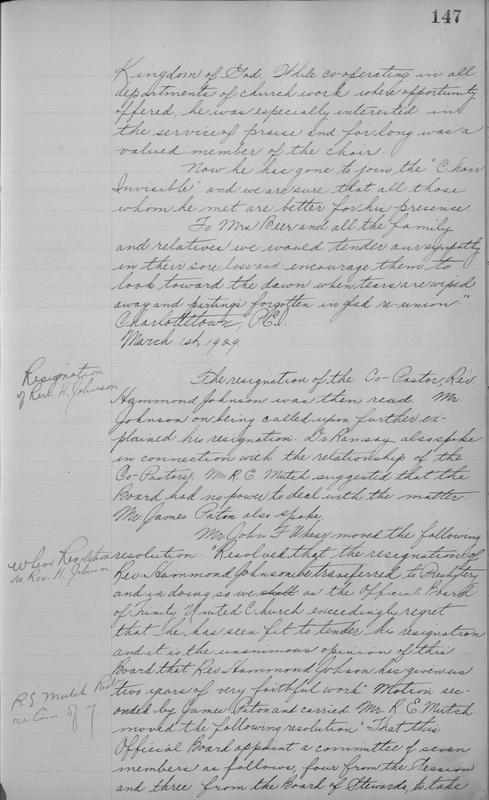 147
Kingdom of God. While co-operating in all
departments of church work where opportunity
offered, he was especially interested in
the service of praise and for long was a
valued member of the choir.
Now he has gone to join the "Choir
Invisible" and we are sure that all those
whom he met are better for his presence.
To Mrs Beer and all the family
and relatives we would tender our sympathy
in their sore loss and encourage them to
look toward the dawn when tears are wiped
away and partings forgotten in glad re-union."
Charlottetown, P.E.I.
March 1st, 1929.
Resignation
of Rev. H. Johnson
The resignation of the Co-Pastor, Rev
Hammond Johnson was then read. Mr
Johnson on being called upon further ex-
plained his resignation. Dr Ramsay also spoke
in connection with the relationship of the
Co-Pastors. Mr R. E. Mutch suggested that the
Board had no power to deal with the matter.
Mr James Paton also spoke.
Mr John F. Whear moved the following
Whear Resolution
re Rev. H. Johnson
resolution. "Resolved that the resignation of
Rev. Hammond Johnson be transferred to Presbytery
and in doing so we as the Official Board
of Trinity United Church exceedingly regret
that he has seen fit to tender his resignation
and it is the unanimous opinion of this
Board that Rev Hammond Johson has given us
two years of very faithful work. Motion sec-
R. E. Mutch Resol
re Com. of 7
onded by James Paton and carried. Mr. R. E. Mutch
moved the following resolution "That this
Official Board appoint a committee of seven
members as follows, four from the Session
and three from the Board of Stewards, to take